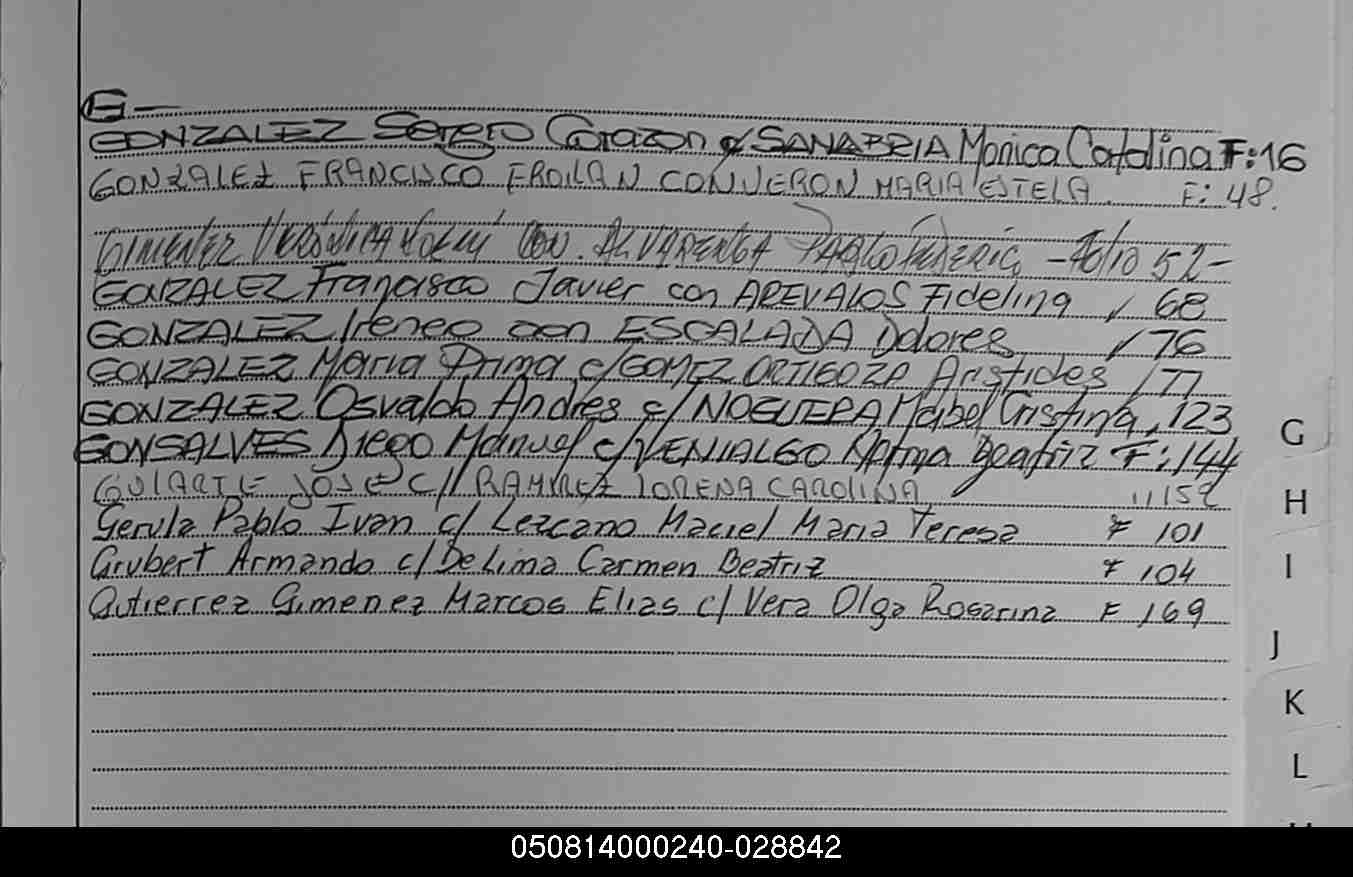 G—
GONZALEZ Sergio Corazon c/ SANABRIA Monica Catalina F:16
GONZALEZ FRANCISCO FROILAN CON VERON MARIA ESTELA. F: 48.
GIMENEZ VERONICA NOEMI CON. ALVARENGA PABLO FEDERICO - Folio 52-
GONZALEZ Francisco Javier con AREVALOS Fidelina / 68
GONZALEZ Ireneo con ESCALADA Dolores / 76
GONZALEZ Maria Prima c/GOMEZ ORTIGOZA Aristides / 77
GONZALEZ Osvaldo Andrés c/ NOGUERA Mabel Cristina, 123
GONSALVES Diego Manuel c/VENIALGO Norma Beatriz F: 144
GULARTE JOSE C// RAMIREZ LORENA CAROLINA 11 152
Gerula Pablo Ivan c/ Lezcano Maciel Maria Teresa F 101
Grubert Armando c/ De Lima Carmen Beatriz F 104
Gutierrez Gimenez Marcos Elias c/ Vera Olga Rosarina F 169
G
H
I
J
K
L
050814000240-028842